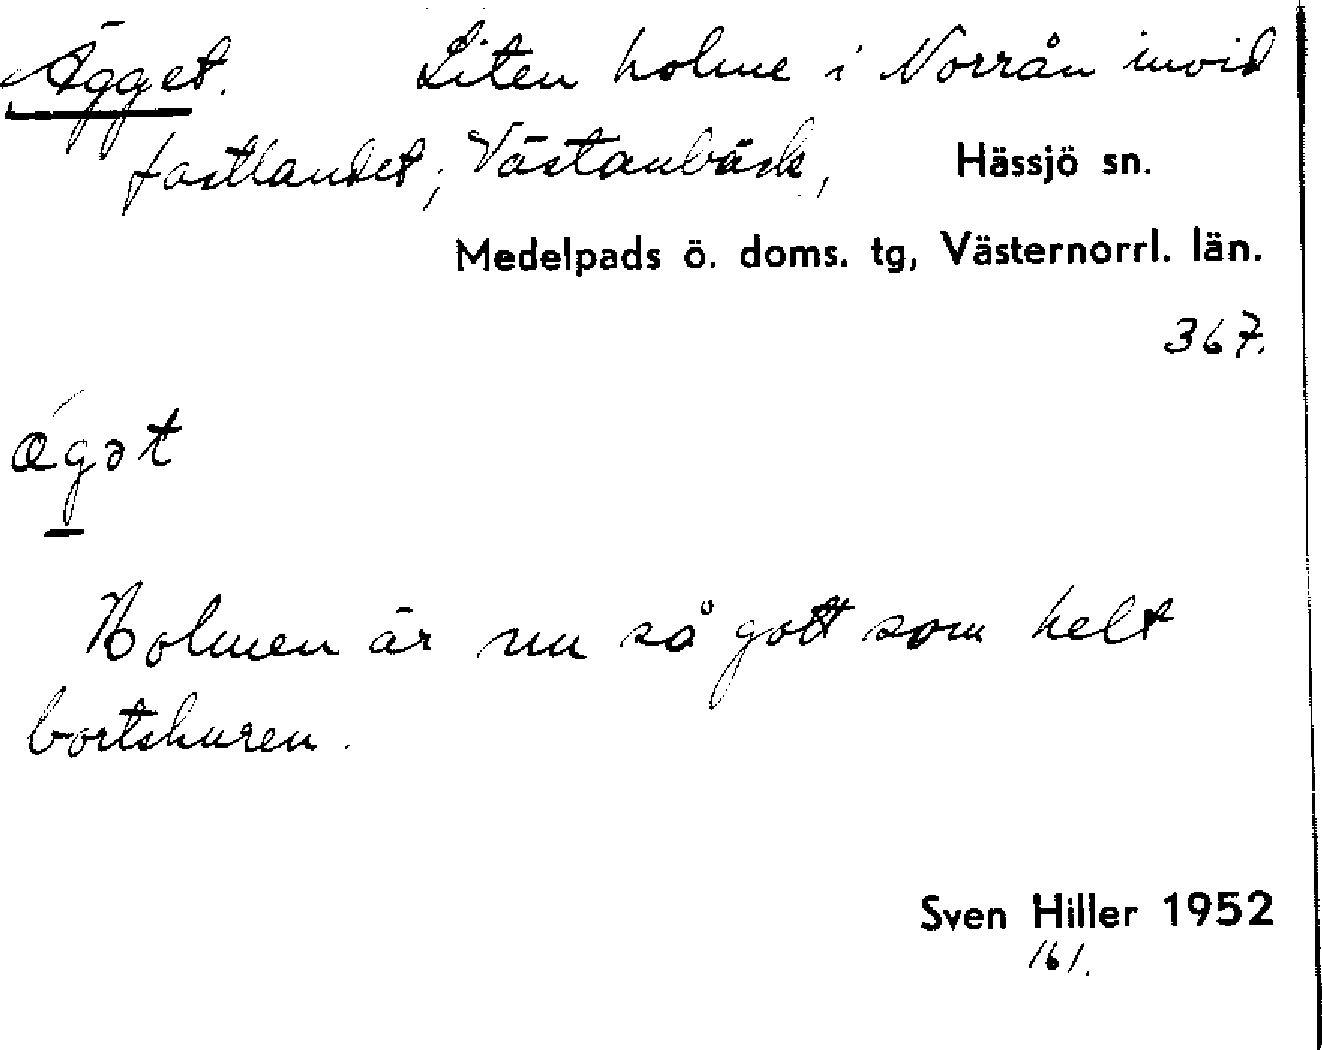 Ägget. Liten holme i Norrån invid
fastlandet; Västanbäck, Hässjö sn.
Medelpads ö. doms. tg, Västernorrl. län.
367.
ǽgət
Holmen är nu så gott som helt
bortskuren.
Sven Hiller 1952
161.